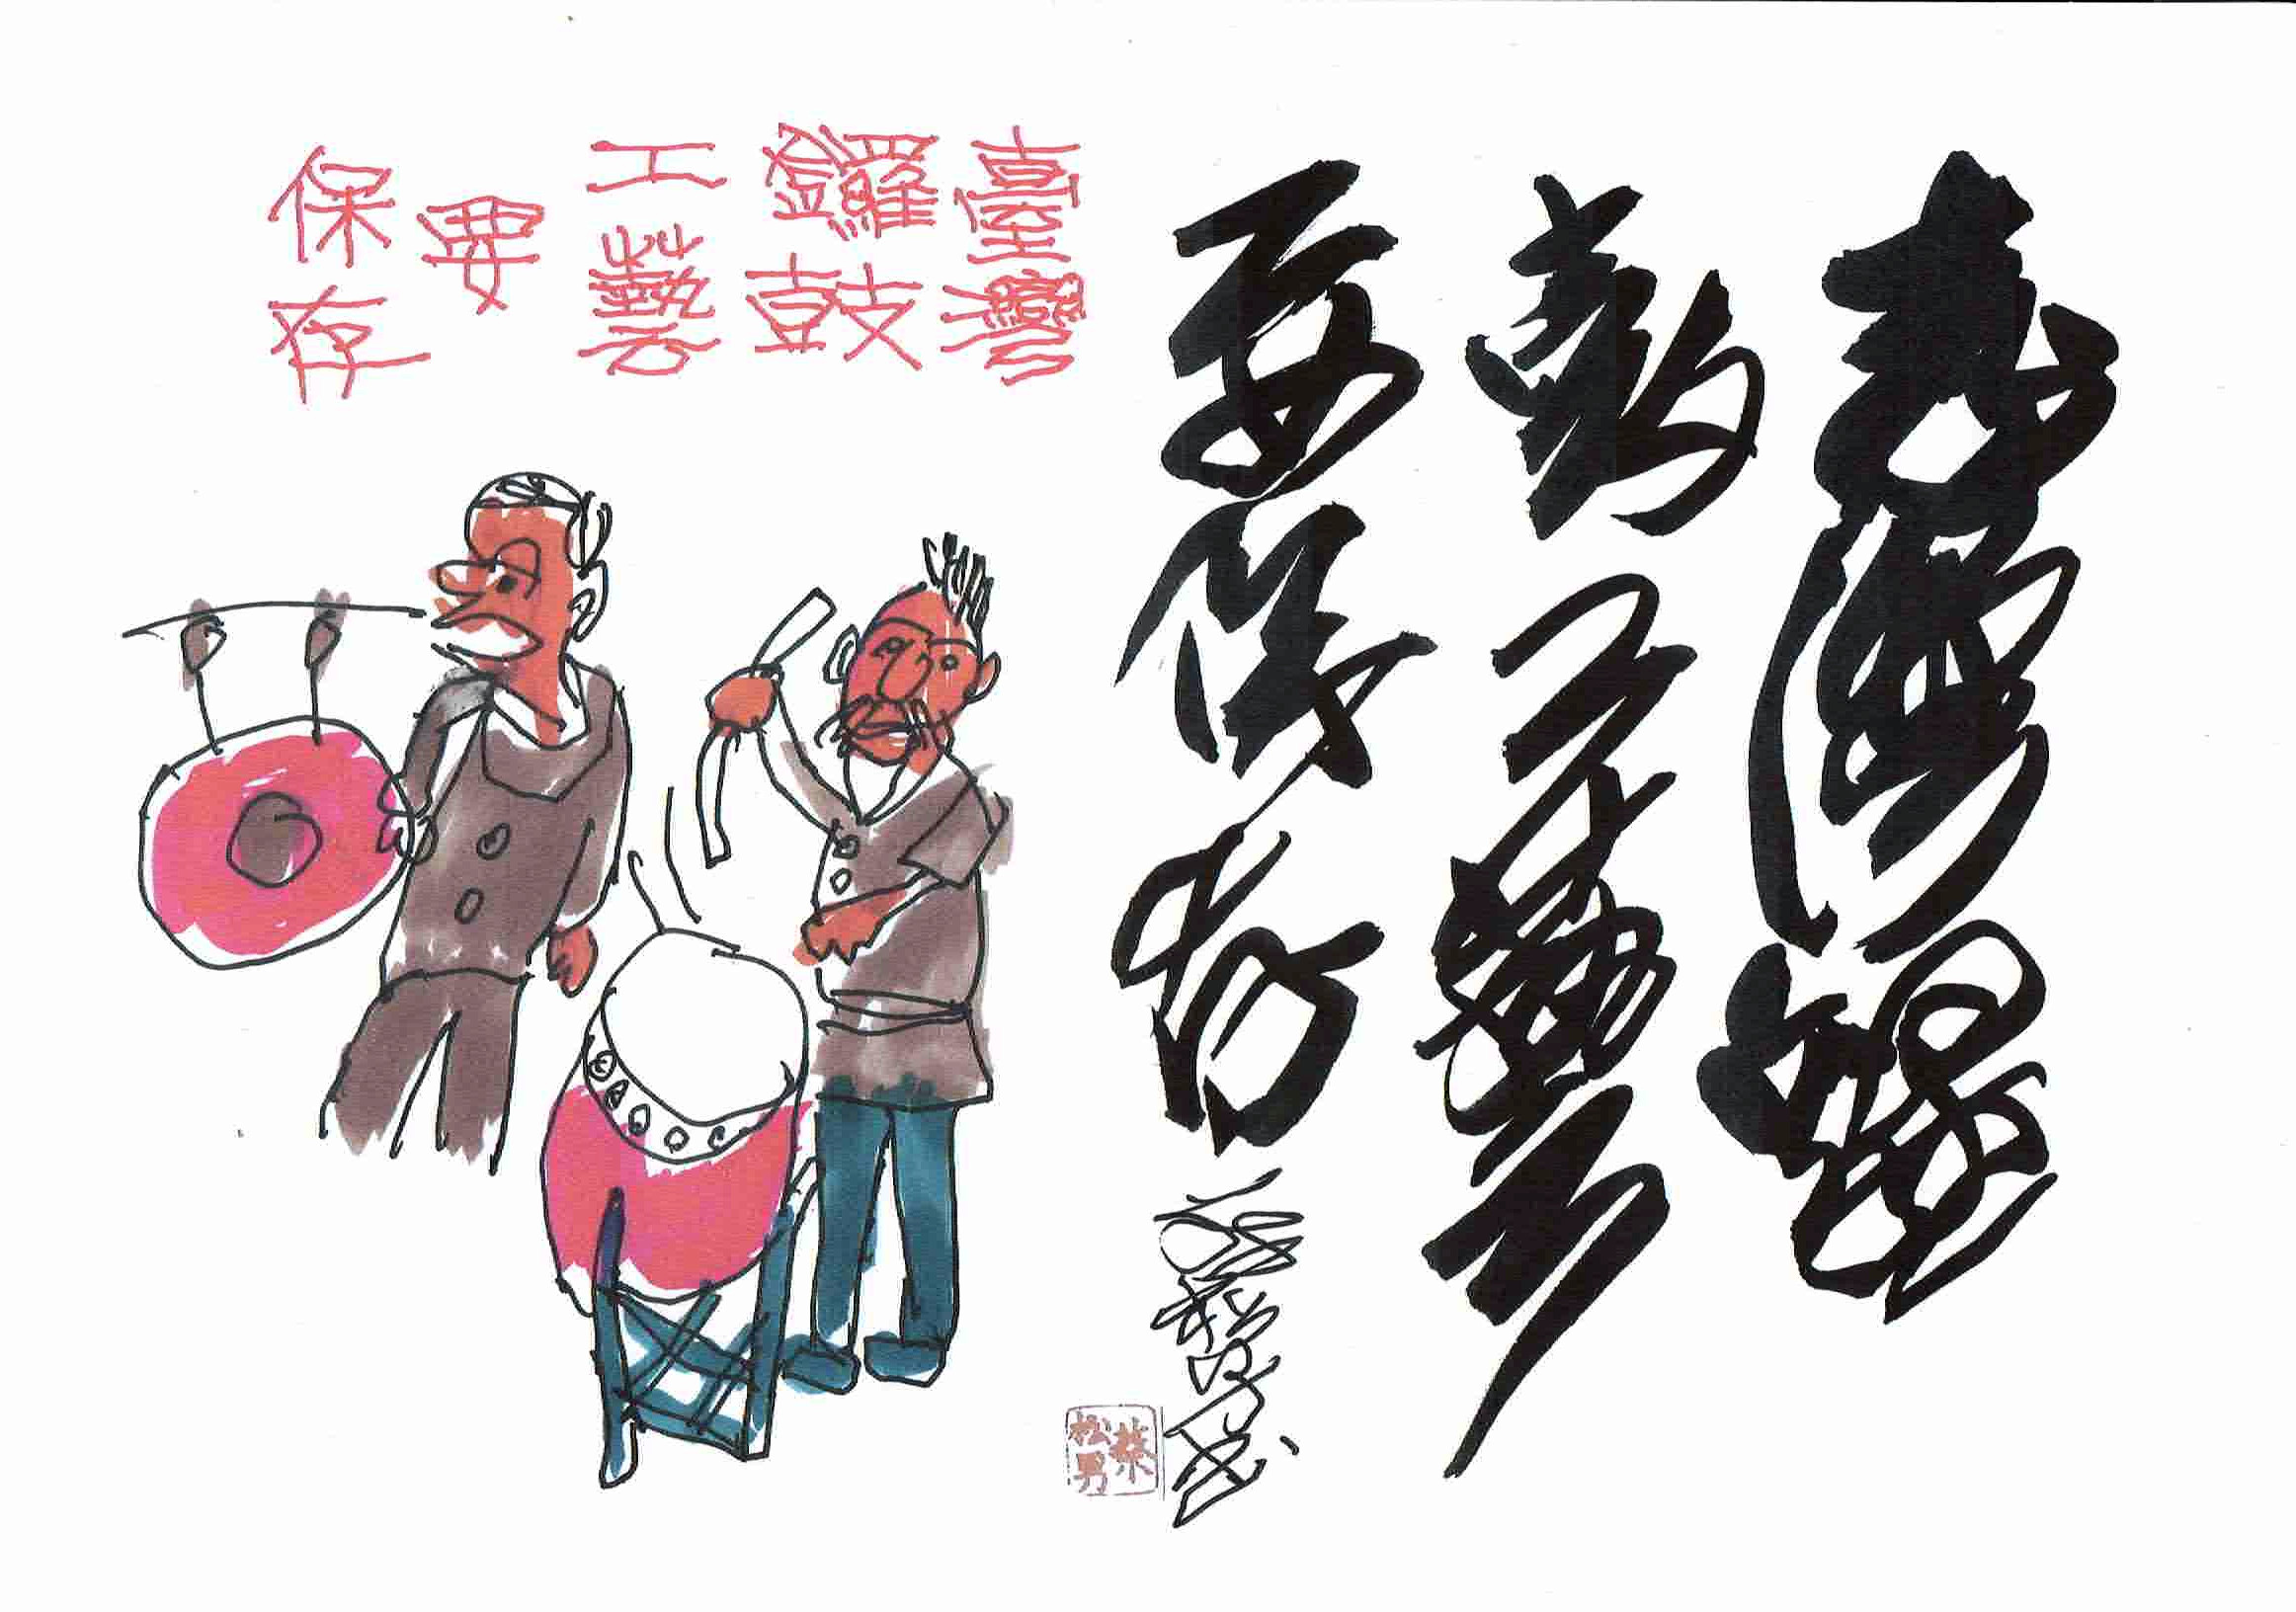 臺灣鑼
鼓工藝
要保存
松男
臺灣
鑼鼓
工藝
要
保存